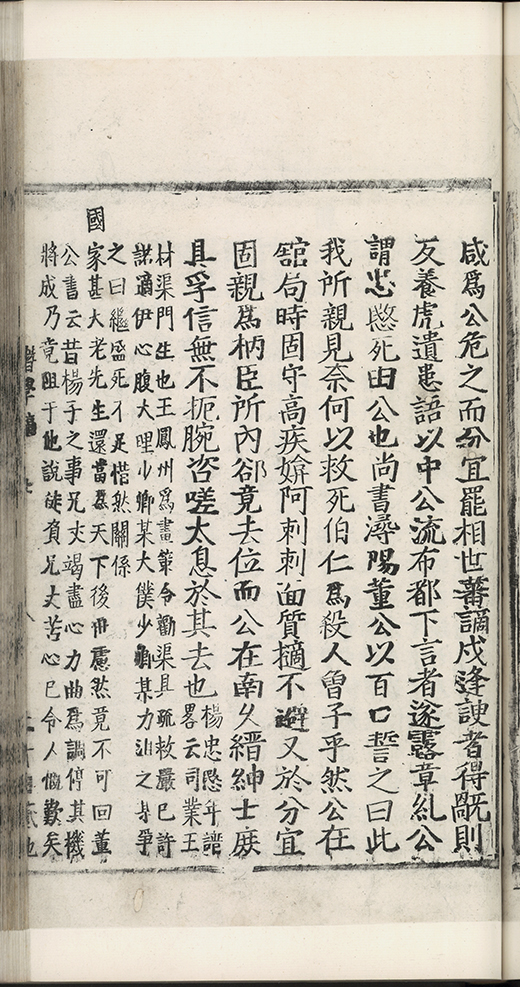 咸爲公危之而分宜罷相世蕃謫戍逢諛者得旣則
反養虎遺患語以中公流布都下言者遂露章糺公
謂忠愍死由公也尚書潯陽董公以百口誓之曰此
我所親見奈何以救死伯仁爲殺人曾子乎然公在
舘局時固守高疾媕阿刺刺面質擿不避又於分宜
固親爲柄臣所內郤竟去位而公在南久縉紳士庻
具孚信無不扼腕咨嗟太息於其去也
楊忠愍年譜
畧云司業王
材渠門生也王鳳州爲畫策令勸渠具疏救嚴已許
諾適伊心腹大理少卿某大僕少卿某力沮之身爭
之曰繼盛死不足惜然關係
國家甚大老先生還當爲天下後世慮然竟不可回董
公書云昔楊子之事兄丈竭盡心力曲爲調停其機
將成乃竟阻于他說徒負兄丈苦心已令人慨歎矣